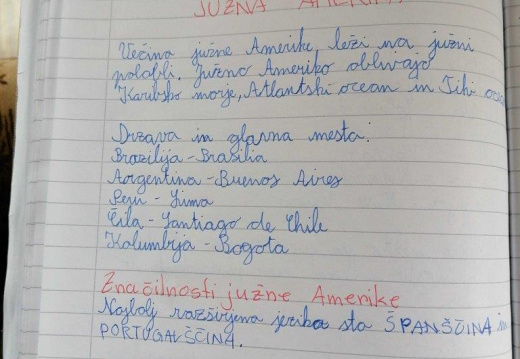 JUŽNA AMERIKA
Večina južne Amerike, leži na južni
polobli. Južno Ameriko oblivajo
Karibsko morje, Atlantski ocean in Tihi oce
Država in glavna mesta:
Brazilija - Brasilia
Argentina - Buenos Aires
Peru - Lima
Čila - Santiago de Chile
Kolumbija - Bogota
Značilnosti južne Amerike
Najbolj razširjena jezika sta ŠPANŠČINA in
PORTUGALŠČINA.